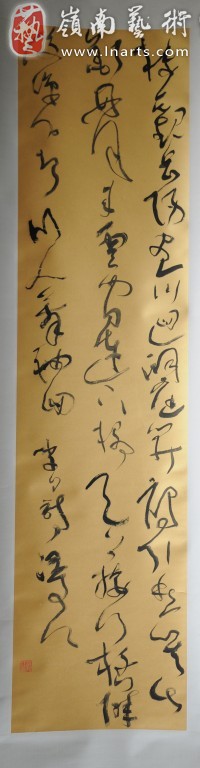 嶺南藝術
www.lnarts.com
樓觀岳陽盡川迥洞庭開雁引愁心去山
銜好月來雲間逢下榻天上接行杯醉
後涼風起吹人舞袖回 李白詩